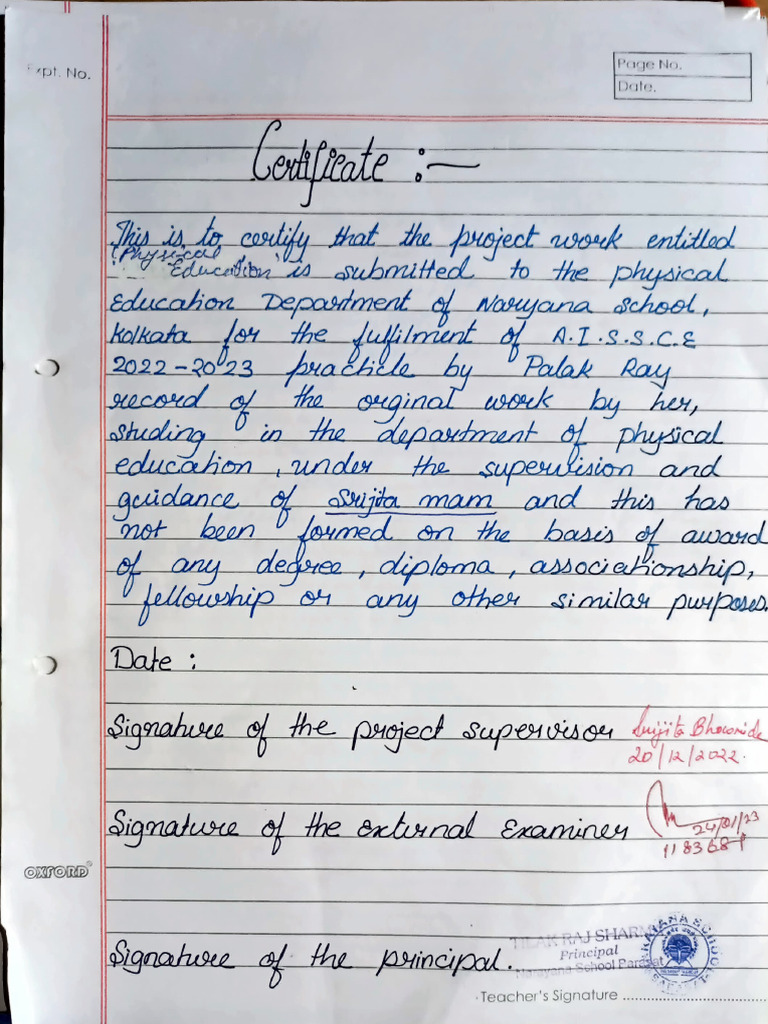 Expt. No.
Page No.
Date.
Certificate :-
This is to certify that the project work entitled
'Physical
Education' is submitted to the physical
Education Department of Naryana School,
Kolkata for the fulfilment of A.I.S.S.C.E
2022-2023 practicle by Palak Ray
record of the orginal work by her,
studing in the department of physical
education, under the supervision and
guidance of Srijita mam and this has
not been formed on the basis of award
of any degree, diploma, associationship,
fellowship or any other similar purposes.
Date :
Signature of the project supervisor Srijita
20/12/2022.
Signature of the External Examiner
24/01/23
OXFORD
TILAK RAJ SHARMA
Principal
Narayana School Barasat
NARAYANA SCHOOL
Signature of the principal.
Teacher's Signature